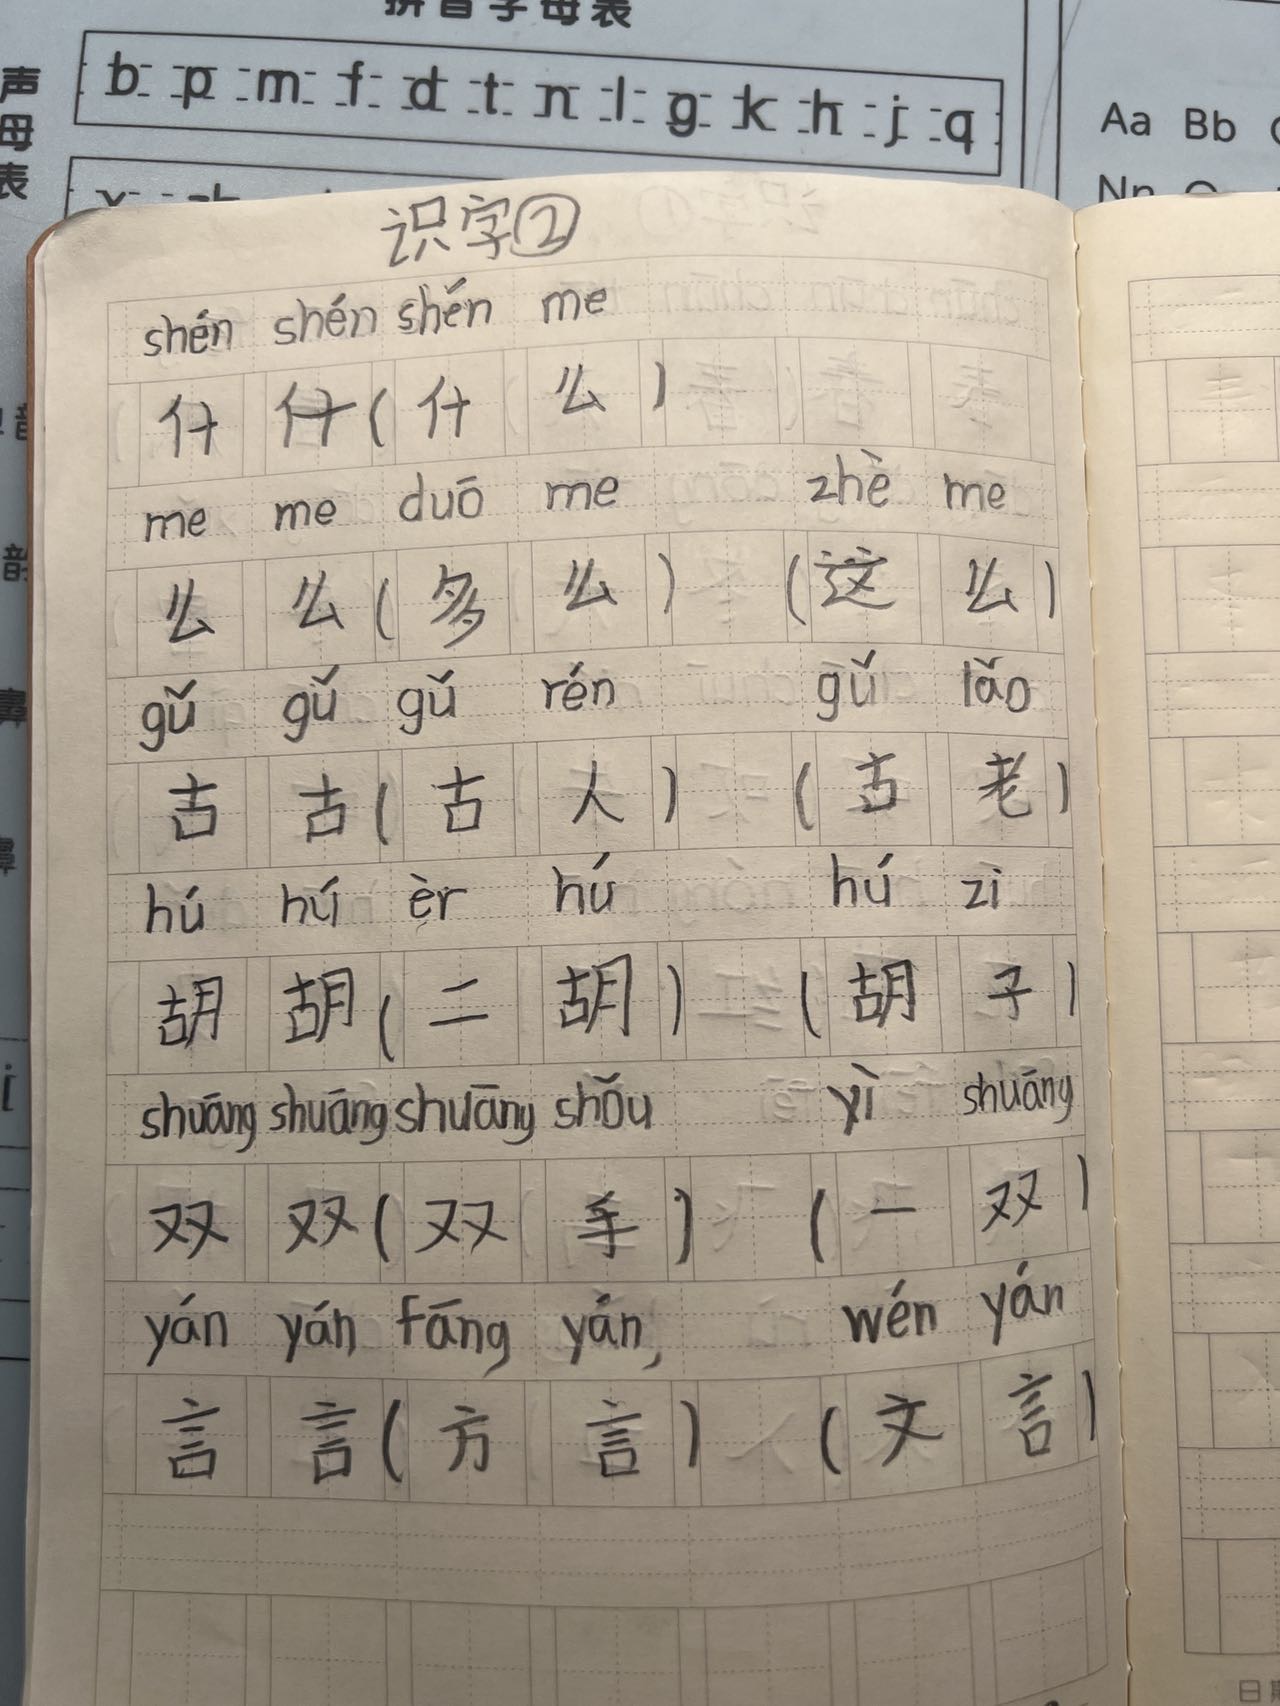 拼音字母表
声母表
b p m f d t n l g k h j q
Aa Bb
Nn
识字②
shén shén shén me
什 什 ( 什 么 )
me me duō me zhè me
么 么 ( 多 么 ) ( 这 么 )
gǔ gǔ gǔ rén gǔ lǎo
古 古 ( 古 人 ) ( 古 老 )
hú hú èr hú hú zi
胡 胡 ( 二 胡 ) ( 胡 子 )
shuāng shuāng shuāng shǒu yì shuāng
双 双 ( 双 手 ) ( 一 双 )
yán yán fāng yán, wén yán
言 言 ( 方 言 ) ( 文 言 )